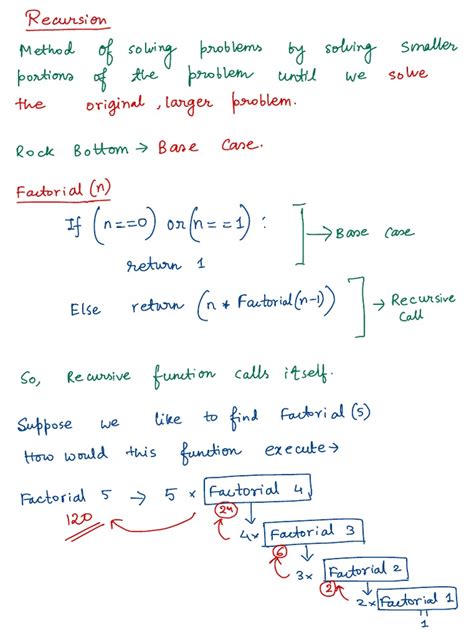 Recursion
Method of solving problems by solving smaller
portions of the problem until we solve
the original, larger problem.
Rock Bottom → Base Case.
Factorial (n)
If (n==0) or (n==1) :
→ Base Case
return 1
Else return (n * Factorial(n-1))
→ Recursive
Call
So, Recursive function calls itself.
Suppose we like to find Factorial (5)
How would this function execute →
Factorial 5 → 5 × Factorial 4
120
24
4× Factorial 3
6
3× Factorial 2
2
2× Factorial 1
11
1